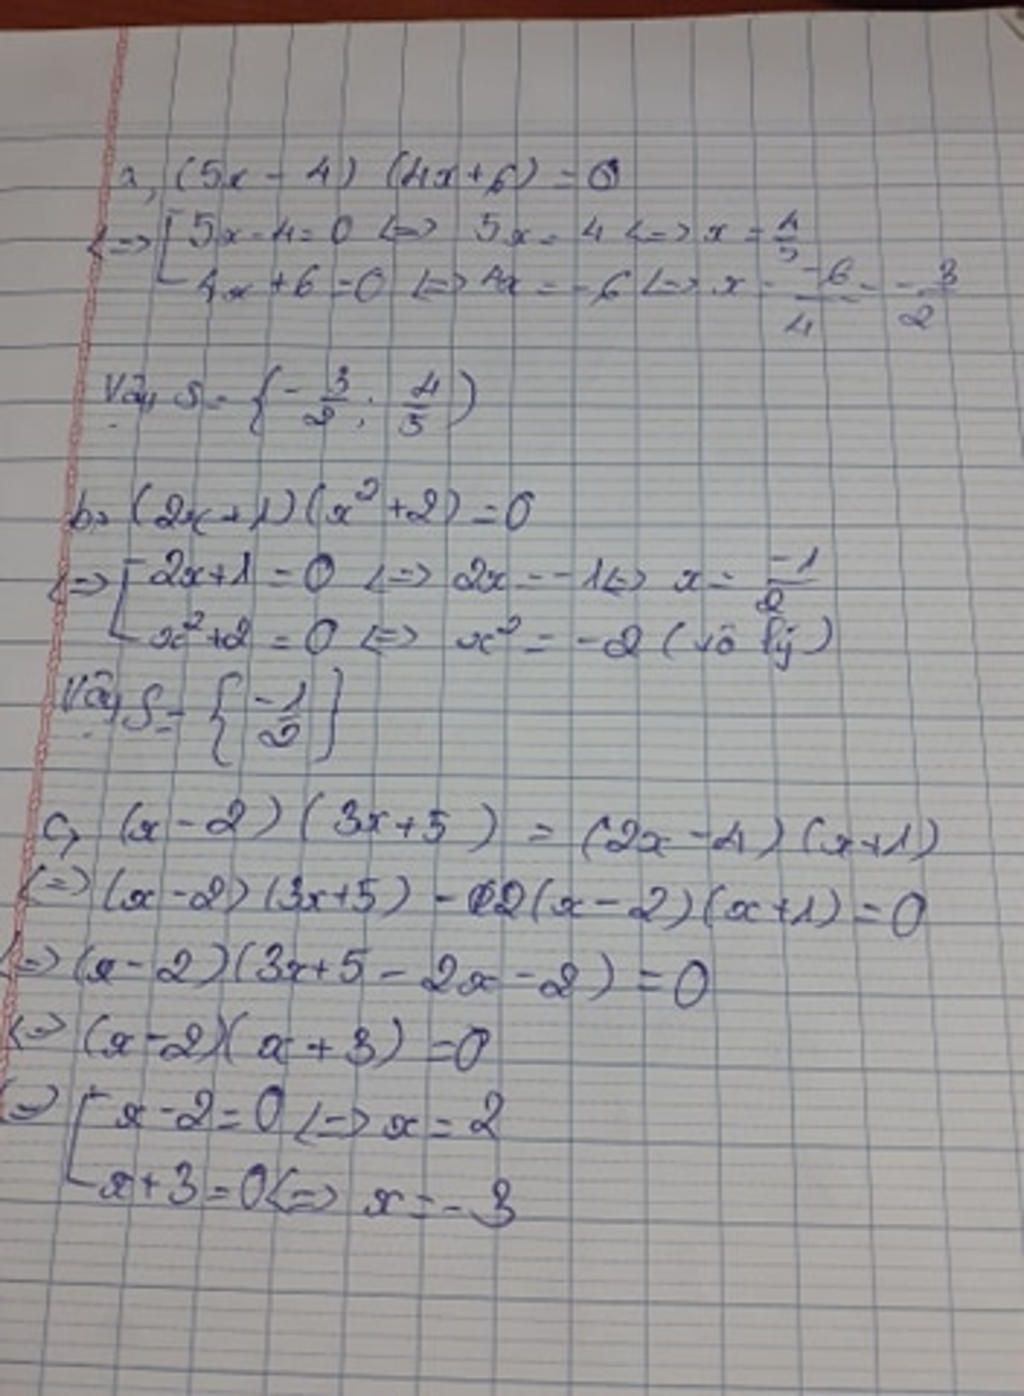 a, (5x - 4) (4x + 6) = 0
<=> [ 5x - 4 = 0 <=> 5x = 4 <=> x = 4/5
4x + 6 = 0 <=> 4x = -6 <=> x = -6/4 = -3/2
Vậy S = { -3/2 ; 4/5 )
b, (2x + 1) (x² + 2) = 0
<=> [ 2x + 1 = 0 <=> 2x = -1 <=> x = -1/2
x² + 2 = 0 <=> x² = -2 (vô lý)
Vậy S = { -1/2 }
c, (x - 2) (3x + 5) = (2x - 4) (x + 1)
<=> (x - 2) (3x + 5) - 2(x - 2) (x + 1) = 0
<=> (x - 2) (3x + 5 - 2x - 2) = 0
<=> (x - 2) (x + 3) = 0
<=> [ x - 2 = 0 <=> x = 2
x + 3 = 0 <=> x = -3